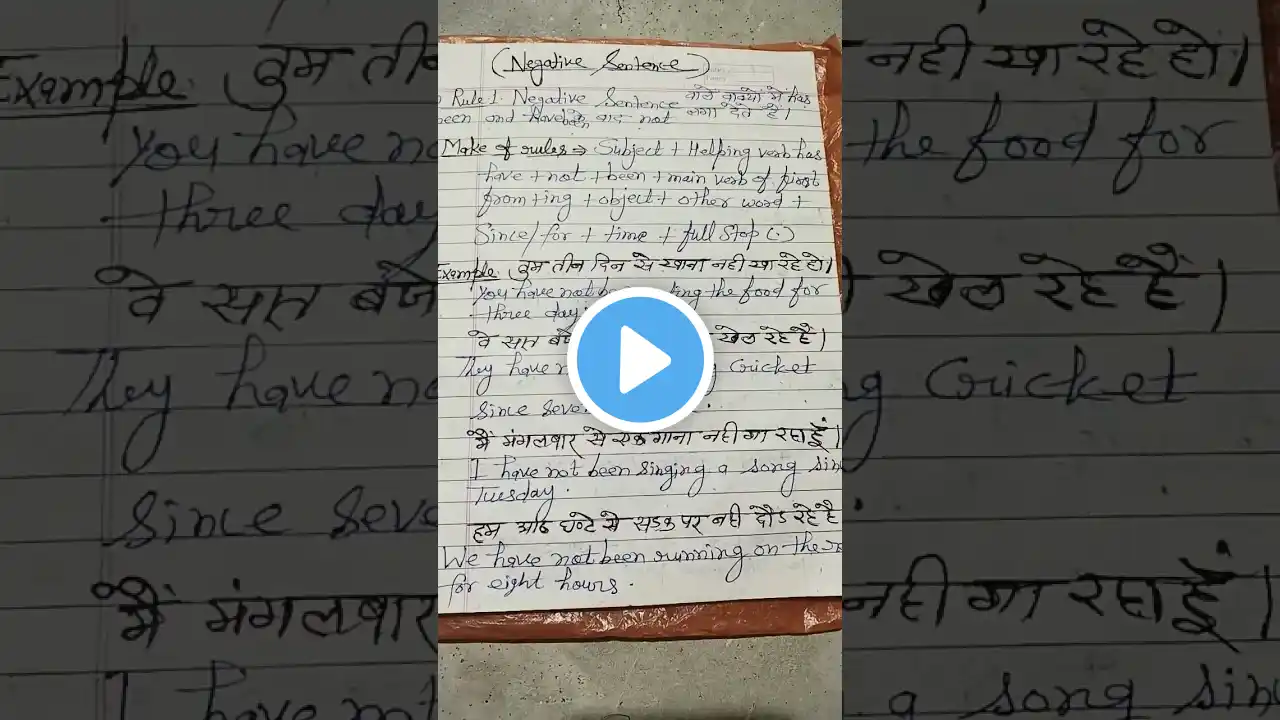 (Negative Sentence)
Rule 1. Negative Sentence वाले वाक्यों में has
been and have been के बाद not लगा देते है।
Make of rules ⇒ Subject + Helping verb has
have + not + been + main verb of first
from + ing + object + other word +
Since/for + time + full stop (.)
Example. तुम तीन दिन से खाना नही खा रहे हो।
You have not the food for
three day
वे सात बजे खेल रहे हैं।
They have Cricket
since
मैं मंगलबार से एक गाना नही गा रहा हूँ।
I have not been singing a song
Tuesday.
हम आठ घण्टे से सड़क पर नही दौड रहे है
We have not been running on the
for eight hours.